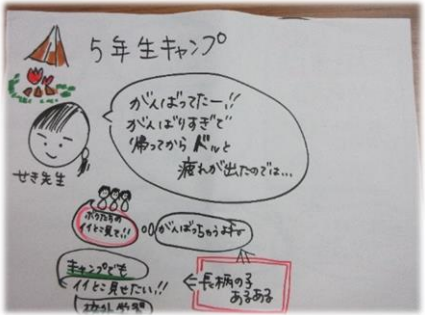 5年生キャンプ
がんばってたー!!
がんばりすぎで
帰ってからドッと
疲れが出たのでは…
せき先生
ボクたちの
イイとこ見て!!
がんばっちゃうよね
キャンプでも
イイとこ見せたい!!
←長柄の子
あるある